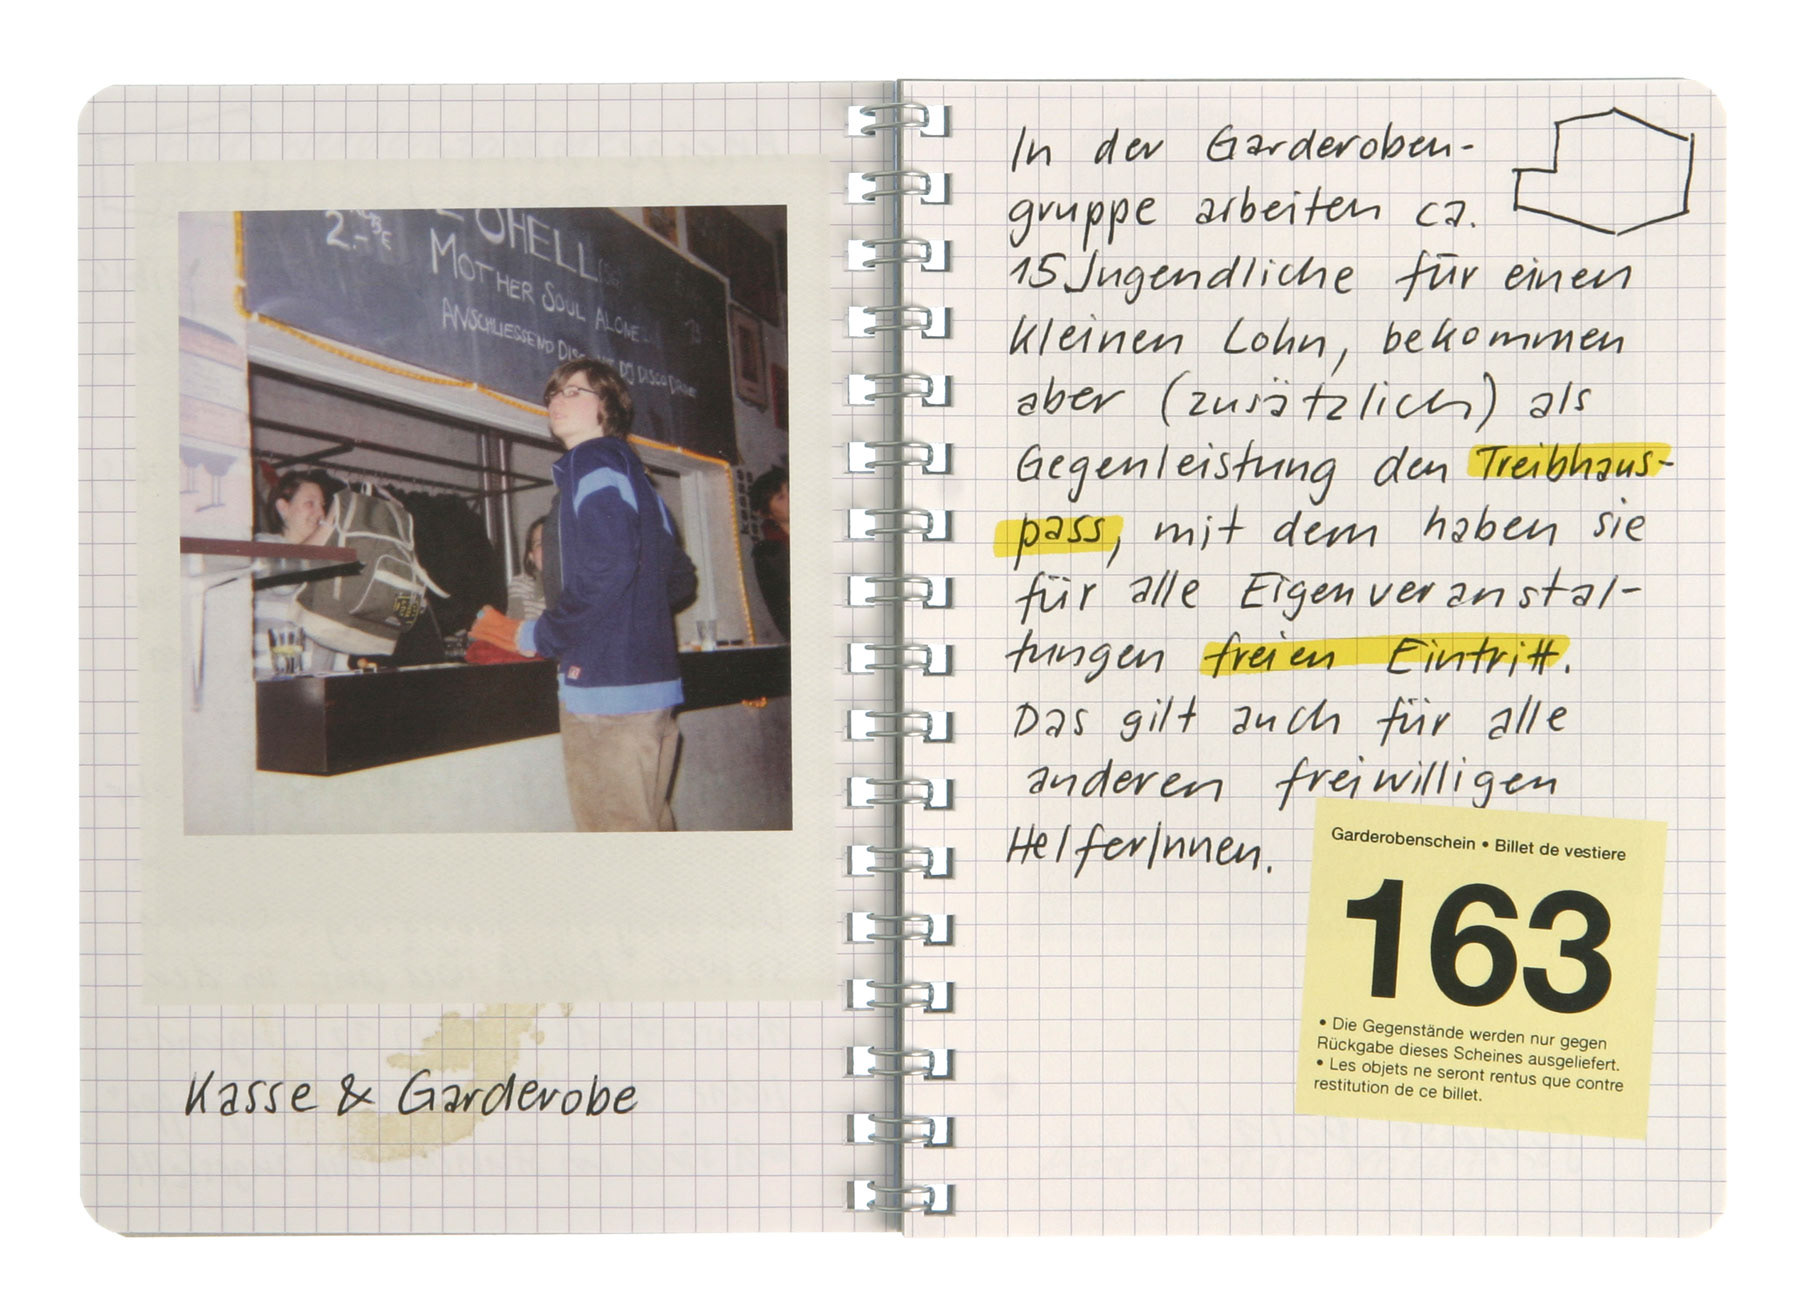 2.-
OHELL
MOTHER SOUL ALONE
ANSCHLIESSEND DISCO MIT DJ DISCO DAVE
Kasse & Garderobe
In der Garderoben-
gruppe arbeiten ca.
15 Jugendliche für einen
kleinen Lohn, bekommen
aber (zusätzlich) als
Gegenleistung den Treibhaus-
pass, mit dem haben sie
für alle Eigenveranstal-
tungen freien Eintritt.
Das gilt auch für alle
anderen freiwilligen
HelferInnen.
Garderobenschein • Billet de vestiere
163
• Die Gegenstände werden nur gegen
Rückgabe dieses Scheines ausgeliefert.
• Les objets ne seront rentus que contre
restitution de ce billet.